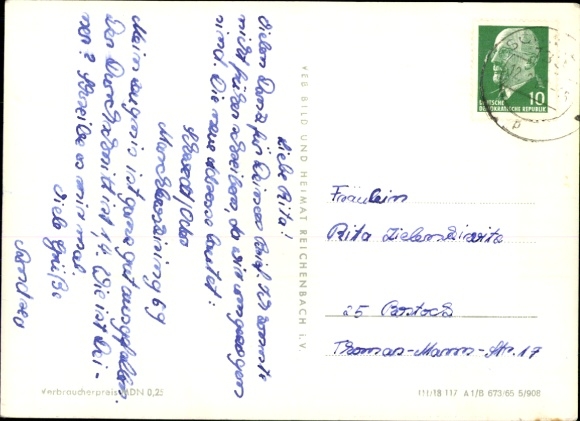 Liebe Rita!
Vielen Dank für Deinen Brief. Ich konnte
nicht früher schreiben, da wir umgezogen
sind. Die neue Adresse lautet:
Schwedt/Oder
69
Mein Zeugnis ist ganz gut ausgefallen.
Der Durchschnitt ist 1,4. Wie ist Dei-
ner? Schreibe es mir mal.
Viele Grüße
Andrea
VEB BILD UND HEIMAT REICHENBACH i. V.
DEUTSCHE
DEMOKRATISCHE REPUBLIK
10
Fräulein
Rita
25 Rostock
Thomas-Mann-Str. 17
Verbraucherpreis MDN 0,25
III/18 117 A 1/B 673/65 5/908